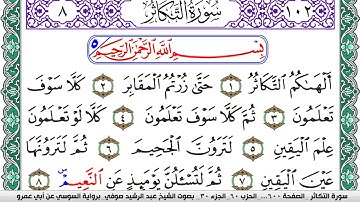 ٨ سُورَةُ التَّكَاثُرِ ١٠٢
بِسْمِ اللَّهِ الرَّحْمَٰنِ الرَّحِيمِ
أَلْهَىٰكُمُ التَّكَاثُرُ ١ حَتَّىٰ زُرْتُمُ الْمَقَابِرَ ٢ كَلَّا سَوْفَ
تَعْلَمُونَ ٣ ثُمَّ كَلَّا سَوْفَ تَعْلَمُونَ ٤ كَلَّا لَوْ تَعْلَمُونَ
عِلْمَ الْيَقِينِ ٥ لَتَرَوُنَّ الْجَحِيمَ ٦ ثُمَّ لَتَرَوُنَّهَا
عَيْنَ الْيَقِينِ ٧ ثُمَّ لَتُسْـَٔلُنَّ يَوْمَئِذٍ عَنِ النَّعِيمِ
سورة التكاثر الصفحة ٦٠٠... الحزب ٦٠ الجزء ٣٠ . بصوت الشيخ عبد الرشيد صوفي برواية السوسي عن أبي عمرو